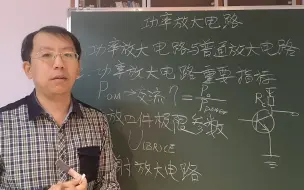 功率放大电路
功率放大电路与普通放大电路
功率放大电路重要指标
Pom 交流 η=Po/P
放 件极限参数
U(BR)CE
射放大电路
R